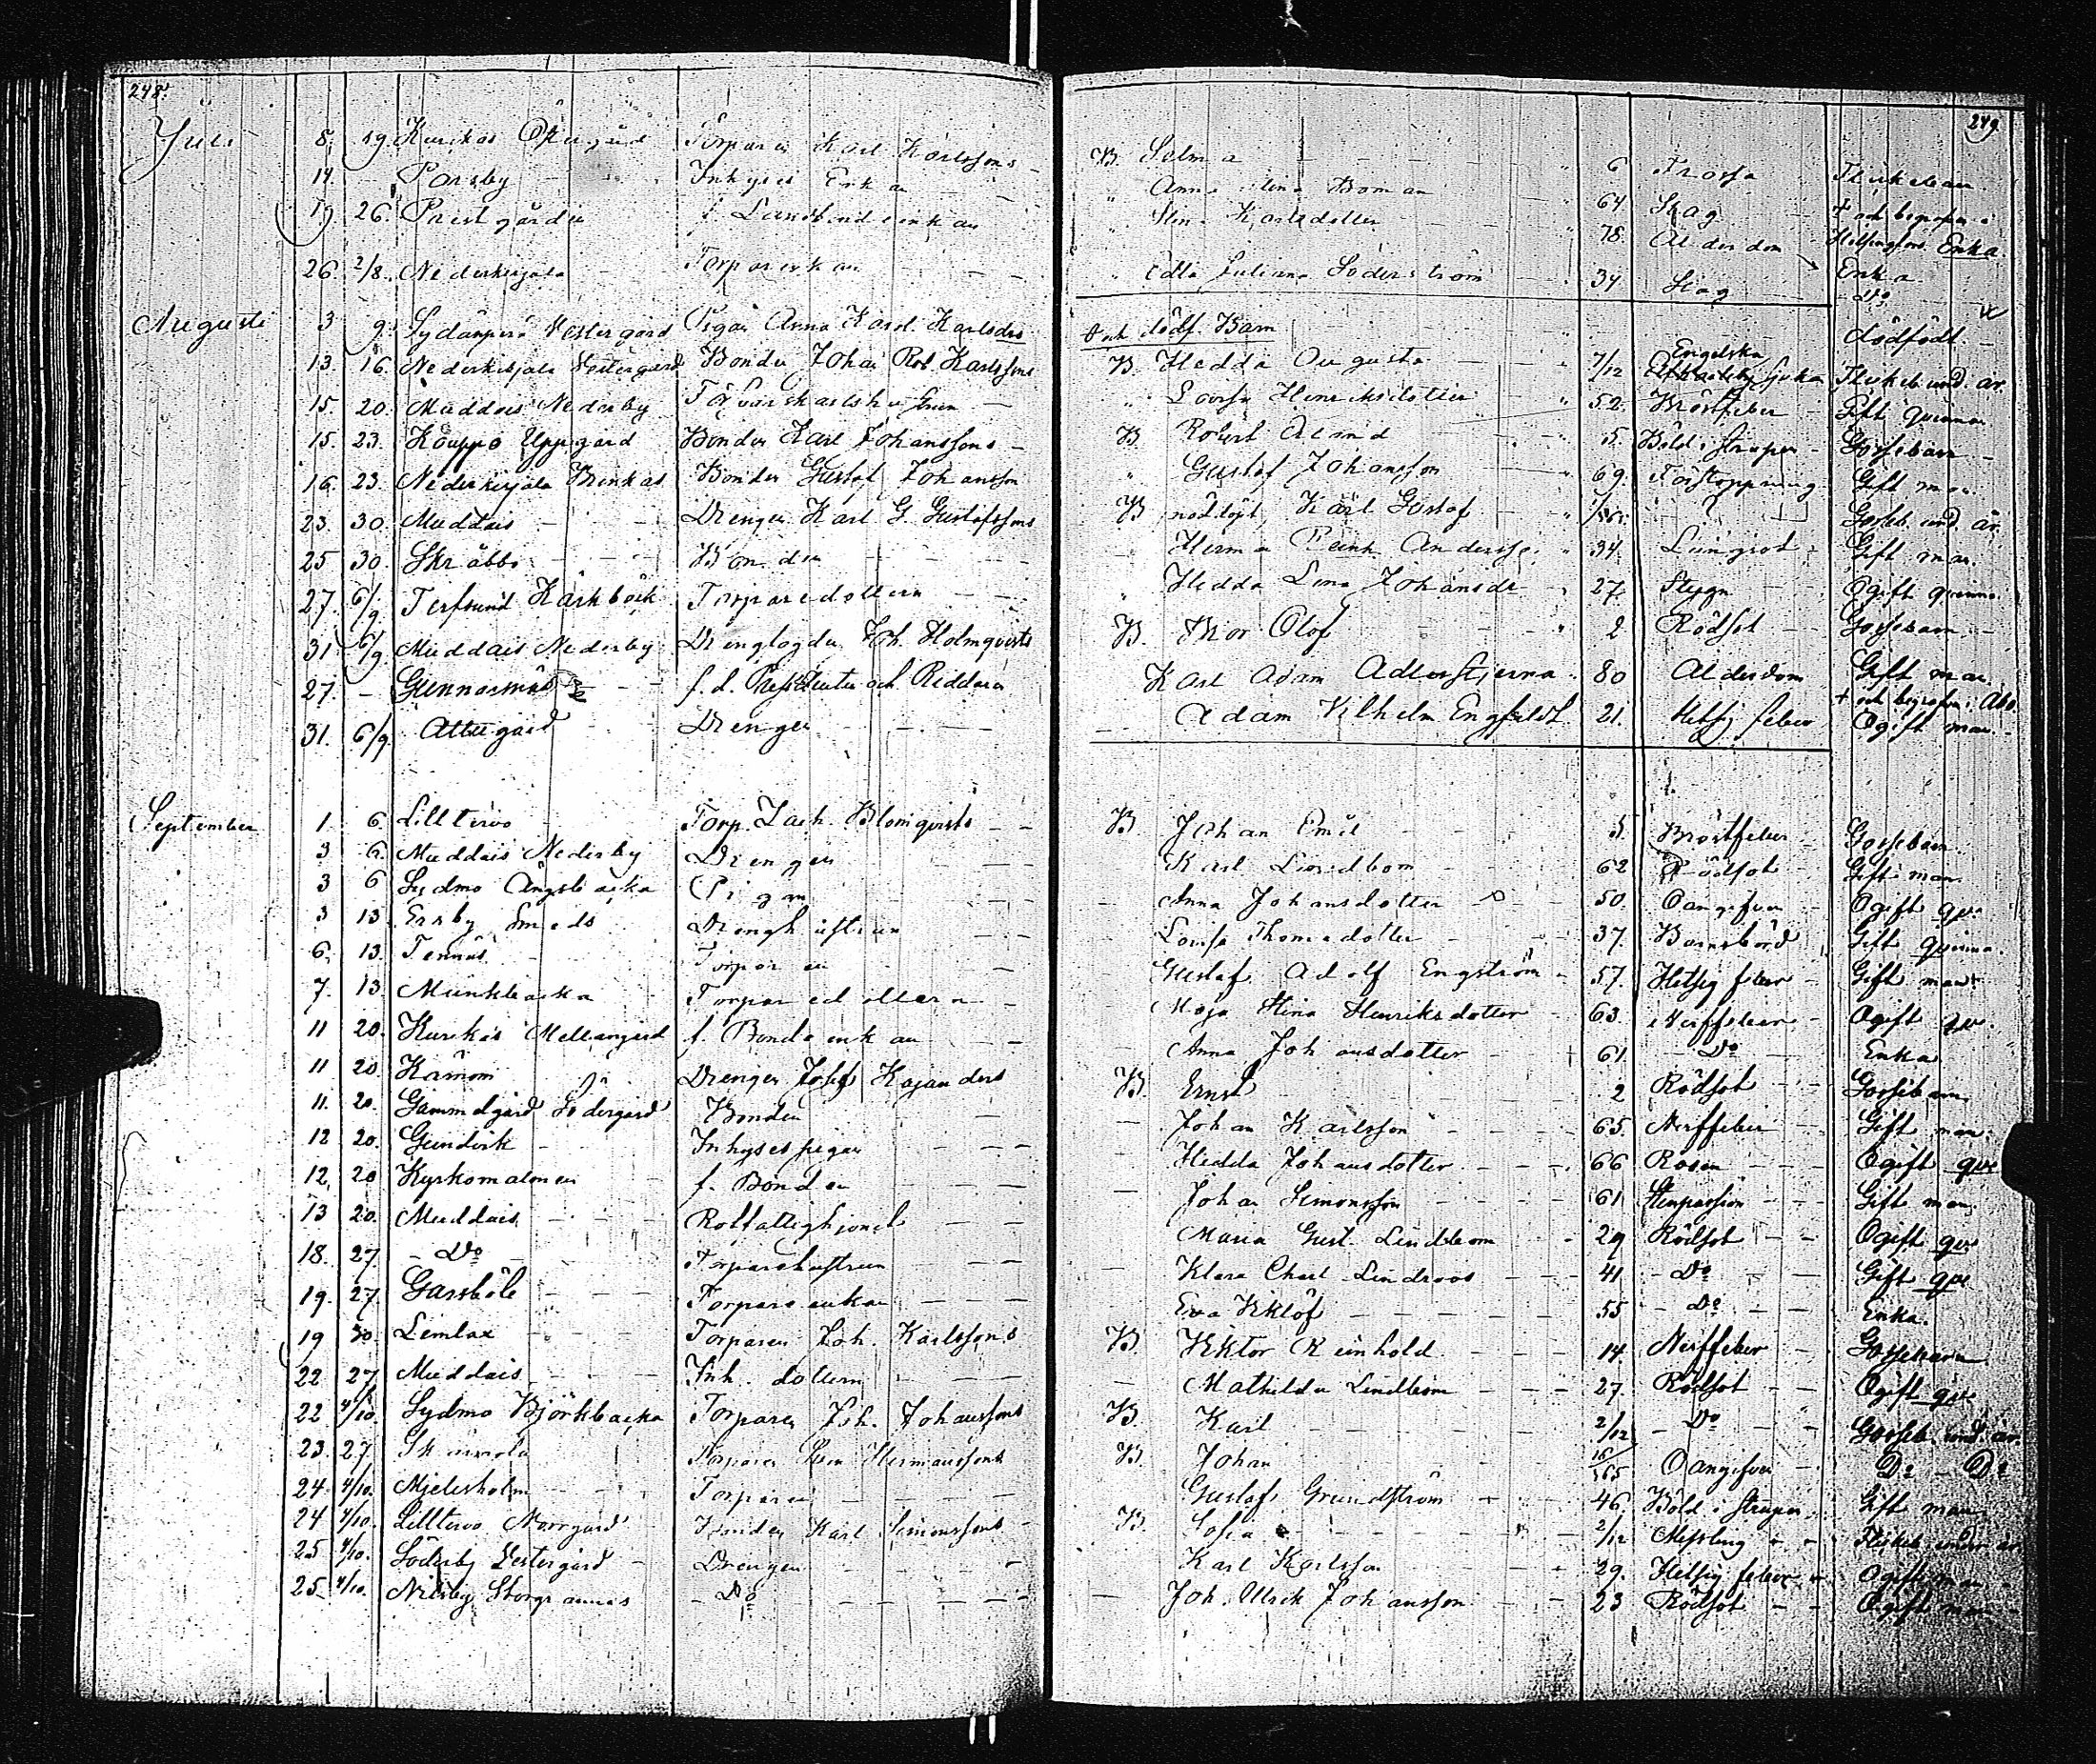 248.
249.
Juli 8. 19 Kurikas Öfvergård Torparen Karl Karlssons B. Selma 6 Trossa Flickebarn
14. – Parsby Inhyses Enkan Anna Lena Boman 64 Slag † och begrafven i Helsingfors Enka.
19 26. Prestgården f. Landbondeenkan Stina Karlsdotter 78. Ålderdom Enka
26. 2/8. Nederkirjala Torparenkan Edla Juliana Söderström 34 Slag Do
Augusti 3 9. Sydänperä Vestergård Pigan Anna Karol. Karlsdrs Oäk. dödf. Barn dödfödt.
13. 16. Nederkirjala Vestergård Bonden Johan Rob. Karlssons B. Hedda Augusta 7/12 Engelska sjukan Flickeb. und. år.
15. 20. Muddais Nederby Lovisa Henriksdotter 52. Bröstfeber Gift qvinna
15. 23. Kouppo Uppgård Bonden Karl Johanssons B. Robert Almd 5. Böld i strupen Gossebarn
16. 23. Nederkirjala Brinkas Bonden Gustaf Johansson Gustaf Johansson 69. Förstoppning Gift man
23. 30. Muddais Drengen Karl G. Gustafssons B. nöddöpt, Karl Gustaf ? Gosseb. und. år.
25 30. Skräbbö Bonden Herman Andersson 34. Lungsot Gift man.
27. 6/9. Terfsund Kärkböle Torparedottern Hedda Lena Johansdr 27. Stygn Ogift qvinna.
31 6/9 Muddais Nederby Joh. Holmqvists B. Thor Olof 2. Rödsot Gossebarn
27. – Gunnarsnäs f. d. Presidenten och Riddaren Karl Adam Adlerstjerna 80 Ålderdom Gift man. † och begrafven i Åbo.
31. 6/9. Attugård Drengen Adam Vilhelm Engfeldt 21. Hetsig feber Ogift man.
September 1. 6. Lilltervo Torp. Zach. Blomqvists B. Johan Emil 5. Bröstfeber Gossebarn
3 6. Muddais Nederby Drengen Karl Lindbom 62 Rödsot Gift man.
3 6 Sydmo Ängsbacka Pigan Anna Johansdotter 50. Oangifven Ogift qv.
3 13. Ersby Smeds Drenghustrun Lovisa Thomasdotter 37. Barnsbörd Gift qvinna.
6. 13. Tennäs Torparen Gustaf Adolf Engström 57. Hetsig feber Gift man
7. 13. Munkbacka Torparedottern Maja Stina Henriksdotter 63. Nerffeber Ogift qv.
11 20. Kurikas Mellangård f. Bondeenkan Anna Johansdotter 61. Do Enka
11 20. Kärmom Drengen Josef Kajanders B. Ernst 2 Rödsot Gossebarn
11. 20. Gammelgård Södergård Bonden Johan Karlsson 65. Nerffeber Gift man.
12 20. Gundvik Inhysespigan Hedda Johansdotter 66 Rosen Ogift qv.
12. 20 Kyrkomalmen f. Bonden Johan Simonsson 61 Stenpassion Gift man.
13 20. Muddais Rotfattighjonet Maria Gust. Lindbom 29 Rödsot Ogift qv.
18. 27. Do Torparehustrun Klara Charl. Lindroos 41. Do Gift qv.
19. 27. Garsböle Torpareenkan Eva Viklöf 55 Do Enka.
19 30. Lemlax Torparen Joh. Karlssons B. Viktor Reinhold 14. Nerffeber Gossebarn
22 27 Muddais Inh. dottern Mathilda Lindbom 27. Rödsot Ogift qv.
22 4/10. Sydmo Björkbacka Torparen Joh. Johanssons B. Karl 2/12 Do Gosseb. und. år.
23. 27. Torparen Hermanssons B. Johan 16/365 Oangifven Do Do
24. 4/10. Mjelisholm Torparen Gustaf Grundström 46. Böld i strupen Gift man
24 4/10. Lilltervo Norrgård Bonden Karl Simonssons B. Sofia 2/12 Messling Flickeb. under år
25 4/10. Söderby Vestergård Drengen Karl Karlsson 29. Hetsig feber Ogift man
25. 4/10. Nilsby Storgrannas Do Joh. Ulrik Johansson 23 Rödsot Ogift man